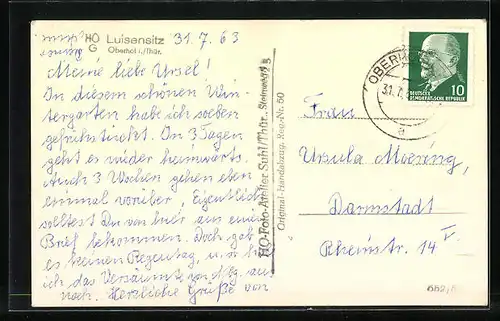 HO Luisensitz
G Oberhof i./Thür.
31.7.63
Meine liebe Ursel!
In diesem schönen Win-
tergarten habe ich soeben
gefrühstückt. In 3 Tagen
geht es wieder heimwärts.
Auch 3 Wochen gehen eben
einmal vorüber, Eigentlich
solltest Du von hier aus einen
Brief bekommen. Doch gab
es keinen Regentag, u. so
ich das Versäumte
noch. Herzliche Grüße von
HO-Foto-Atelier Suhl/Thür. Steinweg 23
Original-Handabzug. Reg.-Nr. 50
OBERH
31.7.
a
DEUTSCHE
DEMOKRATISCHE REPUBLIK
10
Frau
Ursula
Darmstadt
Rheinstr. 14